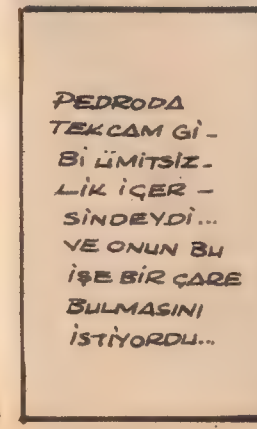 PEDRODA
TEKCAM Gİ-
Bİ ÜMİTSİZ-
LİK İÇER -
SİNDEYDİ...
VE ONUN BU
İŞE BİR ÇARE
BULMASINI
İSTİYORDU...